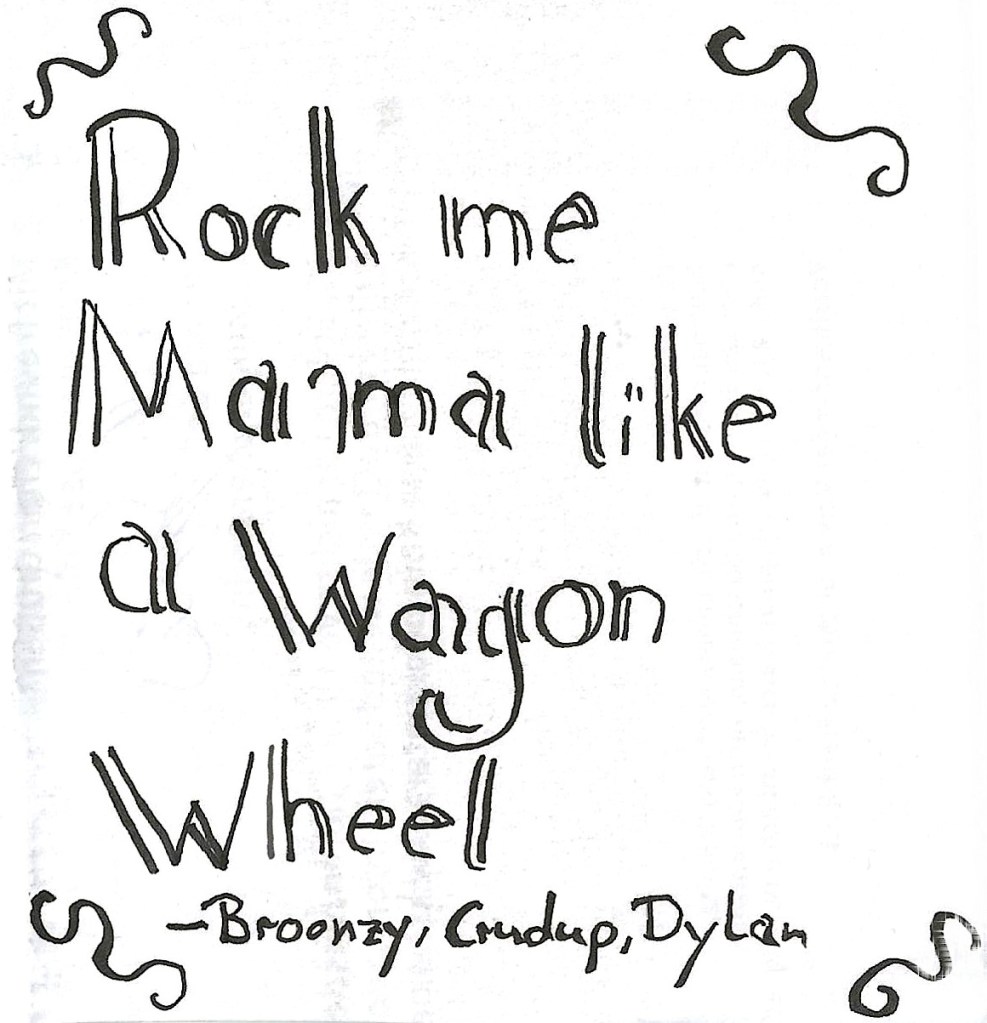 Rock me
Mama like
a Wagon
Wheel
-Broonzy, Crudup, Dylan